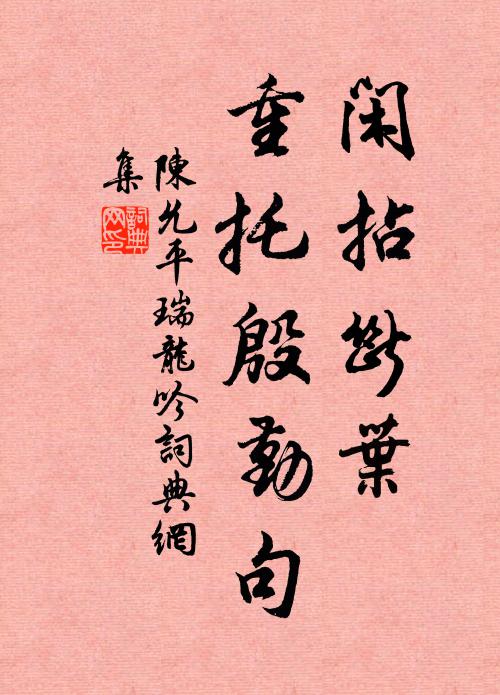 閑拈斷葉
重托殷勤句
陳允平瑞龍吟詞典網
集
詞典
网印